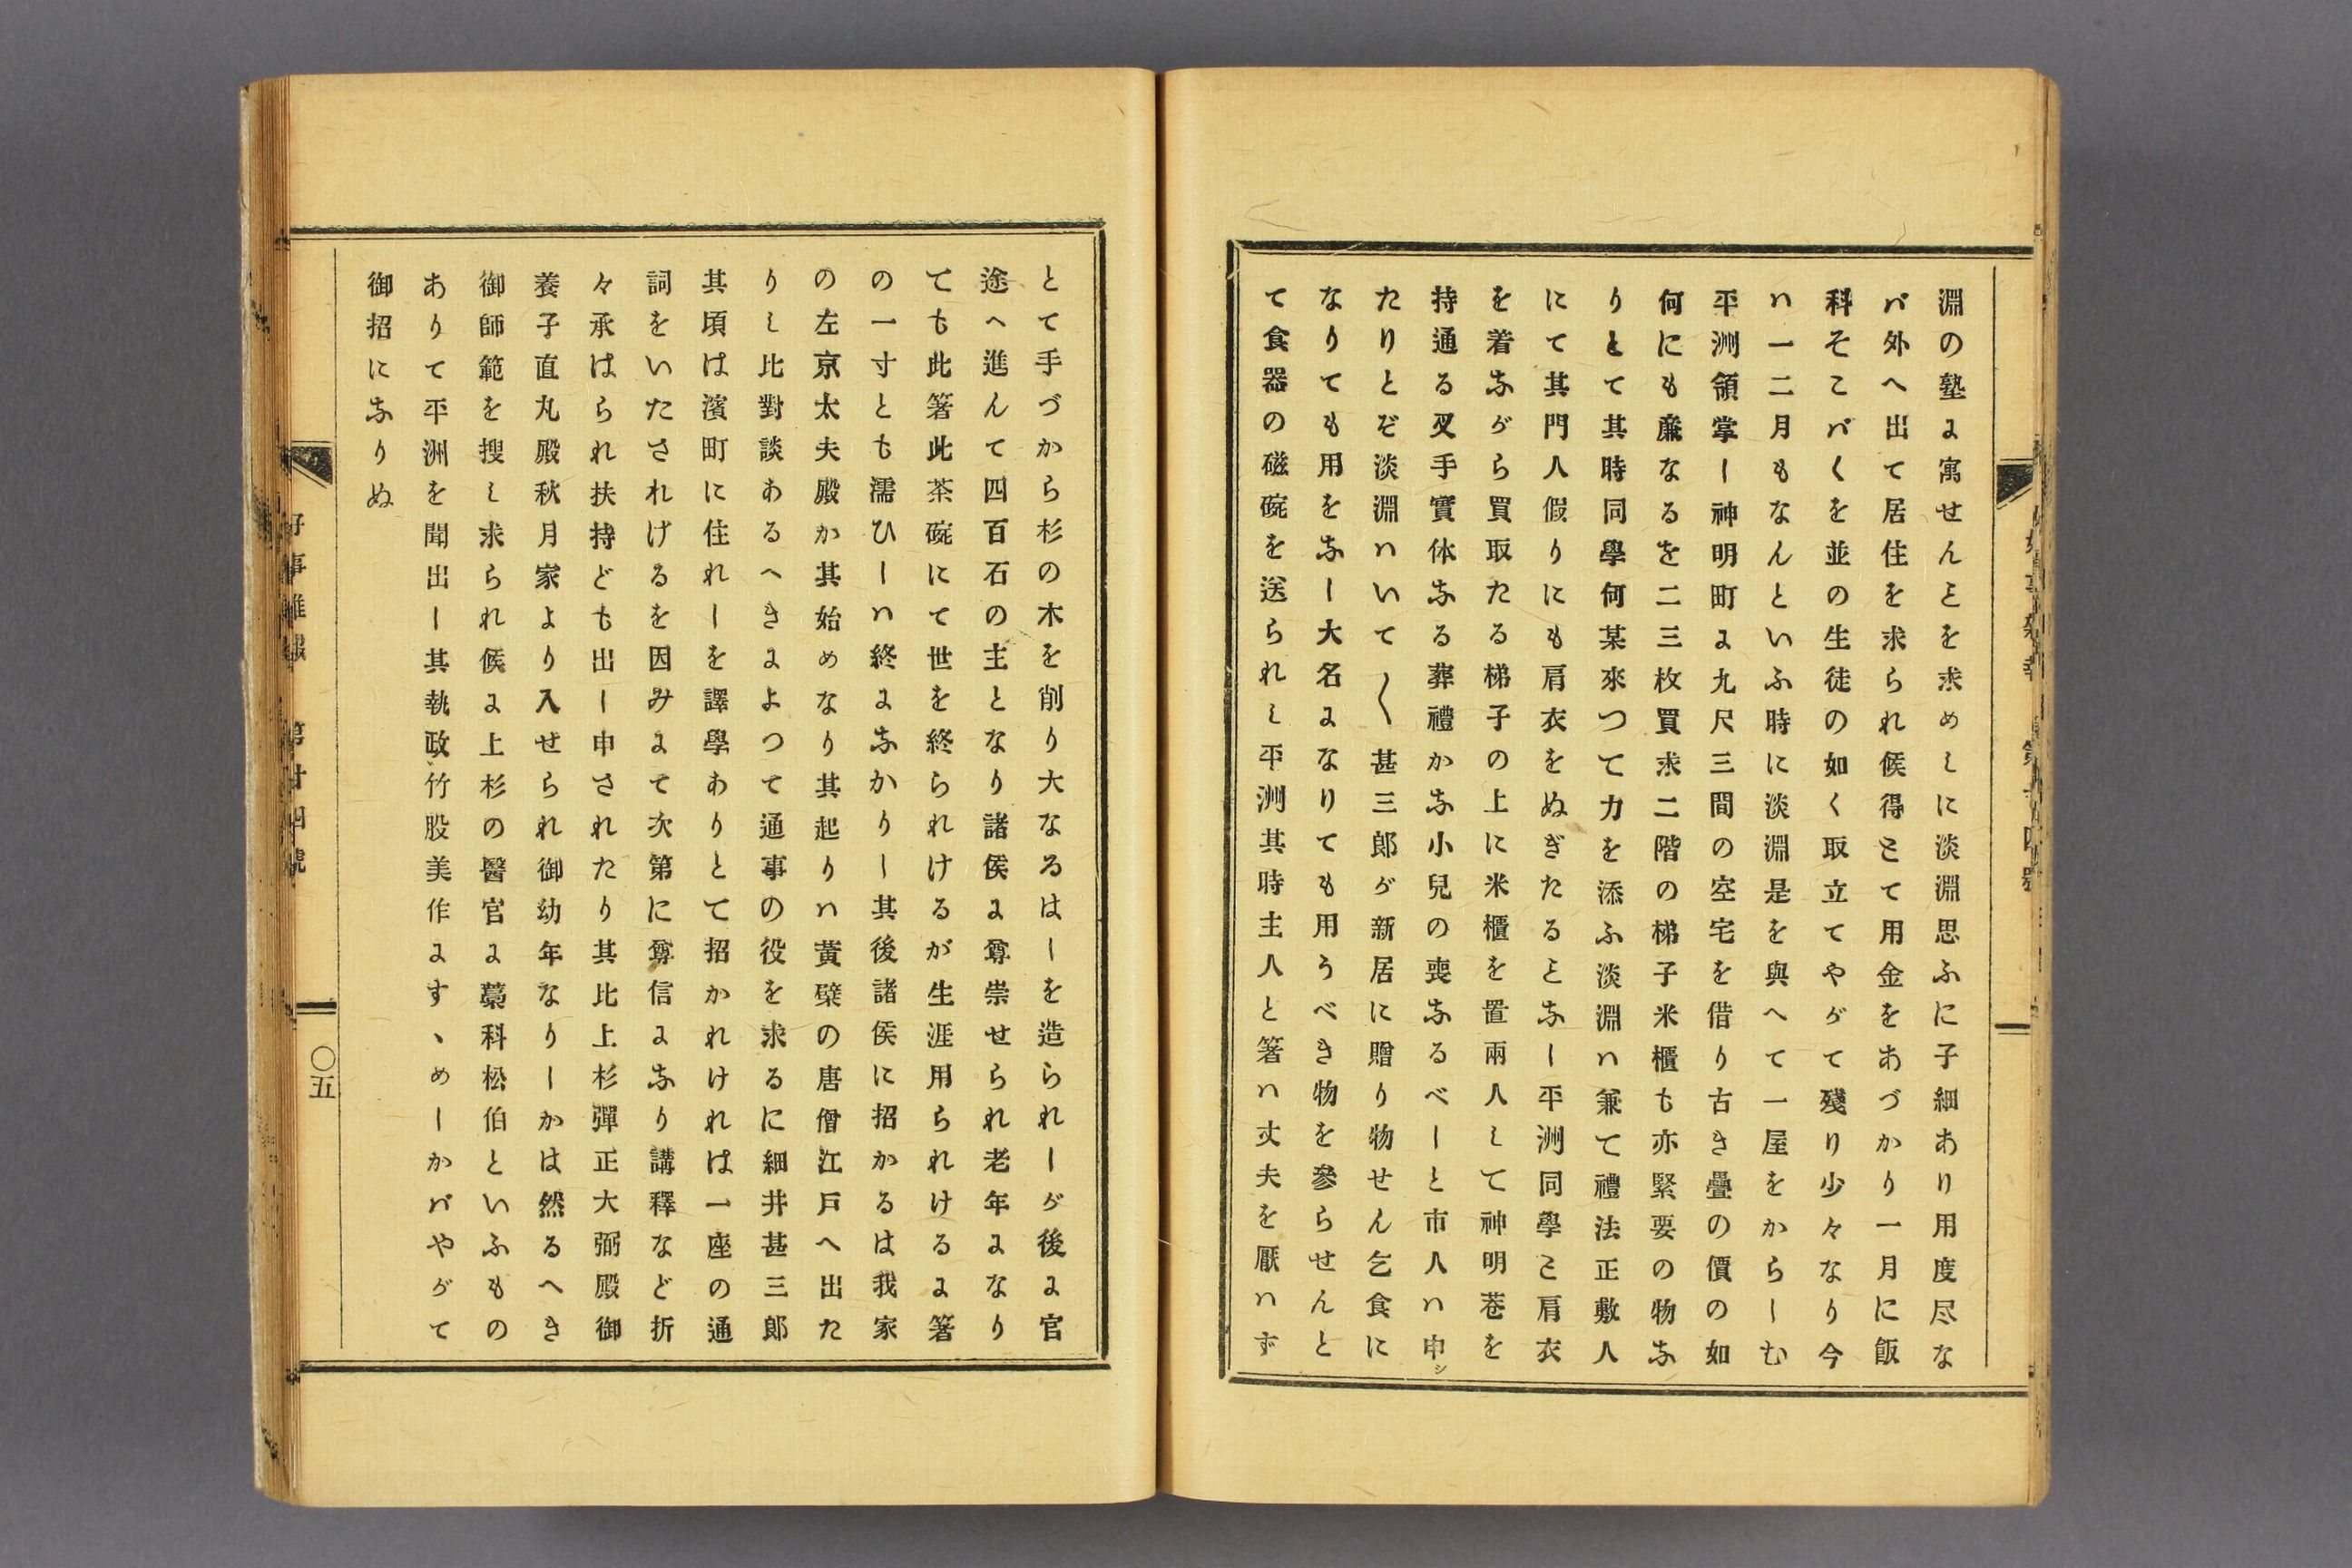 淵の塾ょ寓せんとを求めしに淡淵思ふに子細あり用度尽な
バ外へ出て居住を求られ候得とて用金をあづかり一月に飯
科そこバくを並の生徒の如く取立てやがて殘り少々なり今
ハ一二月もなんといふ時に淡淵是を與へて一屋をからしむ
平洲領掌し神明町ょ九尺三間の空宅を借り古き疊の價の如
何にも廉なるを二三枚買求二階の梯子米櫃も亦緊要の物な
りとて其時同學何某來つて力を添ふ淡淵ハ兼て禮法正敷人
にて其門人假りにも肩衣をぬぎたるとなし平洲同學と肩衣
を着ながら買取たる梯子の上に米櫃を置兩人して神明巷を
持通る又手實体なる葬禮かな小兒の喪なるべしと市人ハ申シ
たりとぞ淡淵ハいて〱甚三郎が新居に贈り物せん乞食に
なりても用をなし大名ょなりても用うべき物を參らせんと
て食器の磁碗を送られし平洲其時主人と箸ハ丈夫を厭ハず
とて手づから杉の木を削り大なるはしを造られしが後ょ官
途へ進んて四百石の主となり諸侯ょ尊崇せられ老年ょなり
ても此箸此茶碗にて世を終られけるが生涯用られけるょ箸
の一寸とも濡ひしハ終ょなかりし其後諸侯に招かるは我家
の左京太夫殿か其始めなり其起りハ黃檗の唐僧江戸へ出た
りし比對談あるへきょよつて通事の役を求るに細井甚三郎
其頃は濱町に住れしを譯學ありとて招かれけれは一座の通
詞をいたされげるを因みょて次第に尊信ょなり講釋など折
々承はられ扶持ども出し申されたり其比上杉彈正大弼殿御
養子直丸殿秋月家より入せられ御幼年なりしかは然るへき
御師範を搜し求られ候ょ上杉の醫官ょ藁科松伯といふもの
ありて平洲を聞出し其執政竹股美作ょすゝめしかバやがて
御招になりぬ
好事雜報 第廿四號
〇五